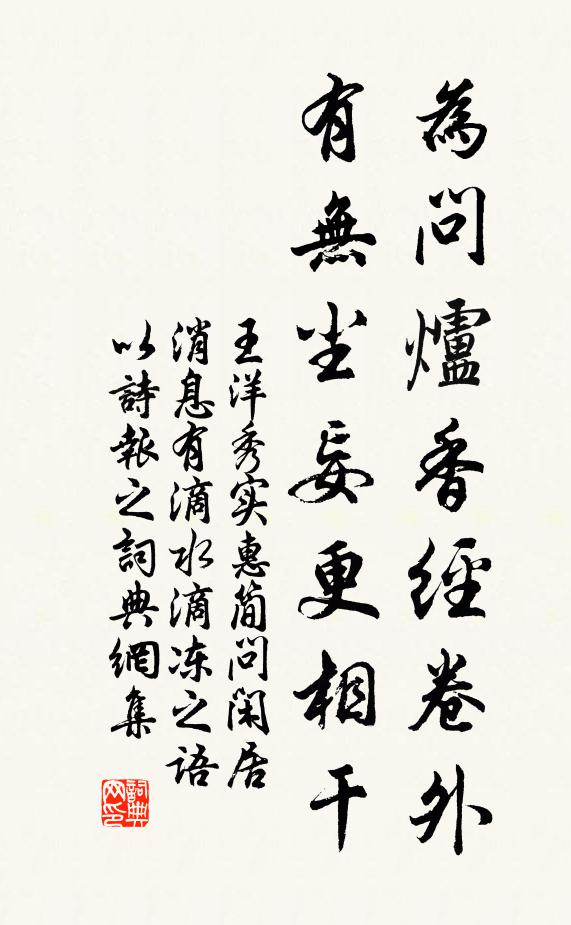 為問爐香經卷外
有無尘妄更相干
王洋秀实惠简問闲居
消息有滴水滴冻之语
以詩報之詞典網集
詞典网印